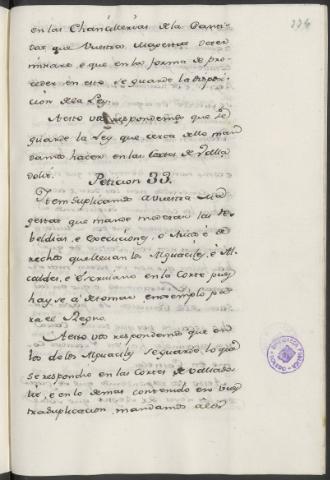 en las Chancillerias de la Canti-
dad que Vuestra Magestad deter
minare e que en la forma de pro-
ceder en esto se guarde la dispor-
cion de la Ley.
A esto vos respondemos que se
guarde la Ley que cerca dello man
damos hacer en las Cortes de Valla
dolid.
Peticion 33.
Item suplicamos a Vuestra Ma
gestad que mande moderar las re-
beldias, e execuciones, o
rechos que llevan los Alguaciles, e Al
caldes, e Escrivano en la Corte pues
hay se a de tomar enxemplo pa
ra el Regno.
A esto vos respondemos que en
lo de los Alguaciles se guarde lo que
se respondio en las Cortes de Vallado-
lid, e en lo demas contenido en vues
tra suplicacion, mandamos a los